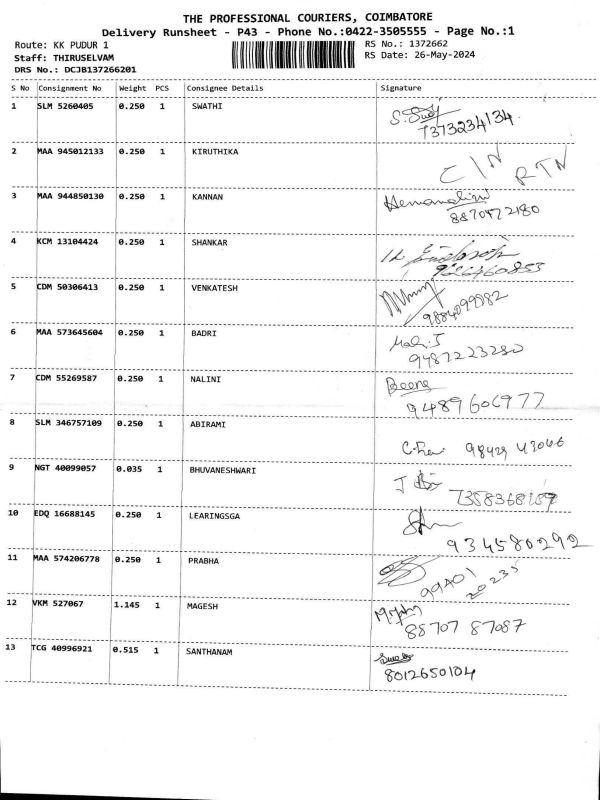 THE PROFESSIONAL COURIERS, COIMBATORE
Delivery Runsheet - P43 - Phone No.:0422-3505555 - Page No.:1
Route: KK PUDUR 1
RS No.: 1372662
Staff: THIRUSELVAM
RS Date: 26-May-2024
DRS No.: DCJB137266201
S No Consignment No Weight PCS Consignee Details Signature
1 SLM 5260405 0.250 1 SWATHI
7373234134
2 MAA 945012133 0.250 1 KIRUTHIKA
C/N RTN
3 MAA 944850130 0.250 1 KANNAN
8870572180
4 KCM 13104424 0.250 1 SHANKAR
9226460853
5 CDM 50306413 0.250 1 VENKATESH
9884099982
6 MAA 573645604 0.250 1 BADRI
9487223280
7 CDM 55269587 0.250 1 NALINI
Beena
9489606977
8 SLM 346757109 0.250 1 ABIRAMI
9 NGT 40099057 0.035 1 BHUVANESHWARI
7358368157
10 EDQ 16688145 0.250 1 LEARINGSGA
934580292
11 MAA 574206778 0.250 1 PRABHA
99401 20235
12 VKM 527067 1.145 1 MAGESH
88707 87087
13 TCG 40996921 0.515 1 SANTHANAM
8012650104